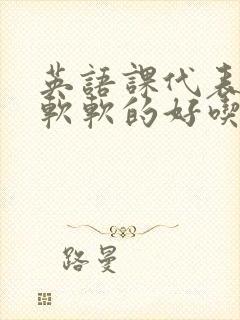 英語課代表
軟軟的好喫
路曼